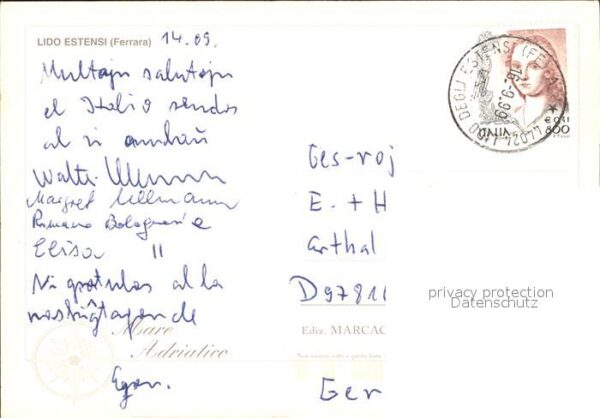 LIDO ESTENSI (Ferrara) 14.09.
Multajn salutojn
el Italio sendas
al vi ambaŭ
Walter Ullmann
Margret Ullmann
Romano Bolognesi e
Elisa "
Ni gratulas al la
naskiĝtago de
Egon.
Mare
Adriatico
44024 LIDO DEGLI ESTENSI (FE)
16-9.99
€ 0,41
800
Ges-roj
E. + H
Arthal
D97816
privacy protection
Datenschutz
Ediz. MARCAC
Ger